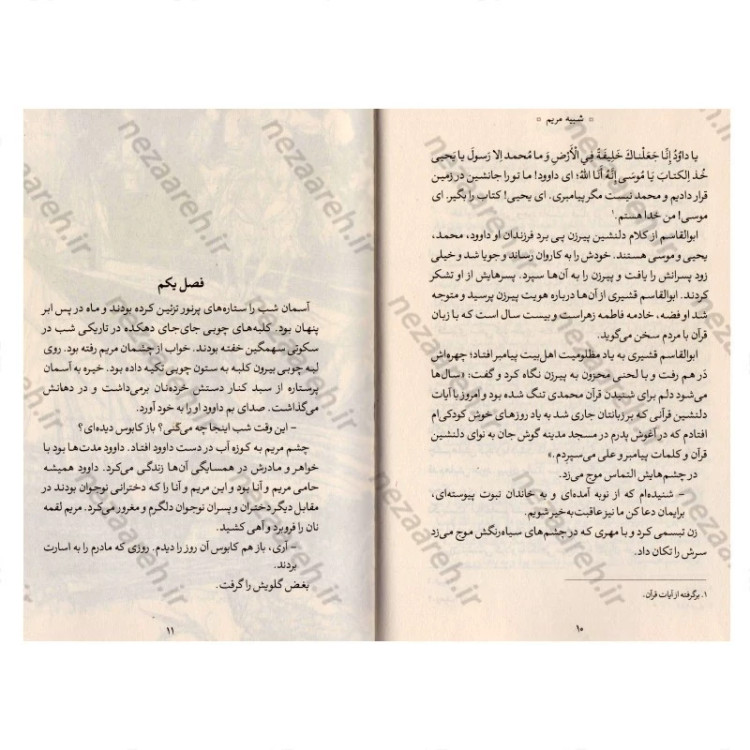 ▫ شبیه مریم ▫
یا داوُدُ إِنَّا جَعَلْناكَ خَلِيفَةً فِي الْأَرْضِ وَ ما مُحمد اِلا رَسولَ یا یَحیی
خُذ اِلکتابَ یَا مُوسَى إِنَّهُ أَنَا اللهُ؛ ای داوود! ما تو را جانشین در زمین
قرار دادیم و محمد نیست مگر پیامبری. ای یحیی! کتاب را بگیر. ای
موسی! من خدا هستم.¹
ابوالقاسم از کلام دلنشین پیرزن پی برد فرزندان او داوود، محمد،
یحیی و موسی هستند. خودش را به کاروان رساند و جویا شد و خیلی
زود پسرانش را یافت و پیرزن را به آن‌ها سپرد. پسرهایش از او تشکر
کردند. ابوالقاسم قشیری از آن‌ها درباره هویت پیرزن پرسید و متوجه
شد او فضه، خادمه فاطمه زهراست و بیست سال است که با زبان
قرآن با مردم سخن می‌گوید.
ابوالقاسم قشیری به یاد مظلومیت اهل‌بیت پیامبر افتاد؛ چهره‌اش
دَر هم رفت و با لحنی محزون به پیرزن نگاه کرد و گفت: «سال‌ها
می‌شود دلم برای شنیدن قرآن محمدی تنگ شده بود و امروز با آیات
دلنشین قرآنی که بر زبانتان جاری شد به یاد روزهای خوش کودکی‌ام
افتادم که در آغوش پدرم در مسجد مدینه گوش جان به نوای دلنشین
قرآن و کلمات پیامبر و علی می‌سپردم.»
در چشم‌هایش التماس موج می‌زد.
– شنیده‌ام که از نوبه آمده‌ای و به خاندان نبوت پیوسته‌ای،
برایمان دعا کن ما نیز عاقبت به خیر شویم.
زن تبسمی کرد و با مهری که در چشم‌های سیاه‌رنگش موج می‌زد
سرش را تکان داد.
۱. برگرفته از آیات قرآن.
۱۰
فصل یکم
آسمان شب را ستاره‌های پرنور تزئین کرده بودند و ماه در پس ابر
پنهان بود. کلبه‌های چوبی جای‌جای دهکده در تاریکی شب در
سکوتی سهمگین خفته بودند. خواب از چشمان مریم رفته بود. روی
لبه چوبی بیرون کلبه به ستون چوبی تکیه داده بود. خیره به آسمان
پرستاره از سبد کنار دستش خرده‌نان برمی‌داشت و در دهانش
می‌گذاشت. صدای بم داوود او را به خود آورد.
– این وقت شب اینجا چه می‌کنی؟ باز کابوس دیده‌ای؟
چشم مریم به کوزه آب در دست داوود افتاد. داوود مدت‌ها بود با
خواهر و مادرش در همسایگی آن‌ها زندگی می‌کرد. داوود همیشه
حامی مریم و آنا بود و این مریم و آنا را که دخترانی نوجوان بودند در
مقابل دیگر دختران و پسران نوجوان دلگرم و مغرور می‌کرد. مریم لقمه
نان را فروبرد و آهی کشید.
– آری، باز هم کابوس آن روز را دیدم. روزی که مادرم را به اسارت
بردند.
بغض گلویش را گرفت.
۱۱
nezaareh.ir
nezaareh.ir
nezaareh.ir
nezaareh.ir
nezaareh.ir
nezaareh.ir
nezaareh.ir
nezaareh.ir